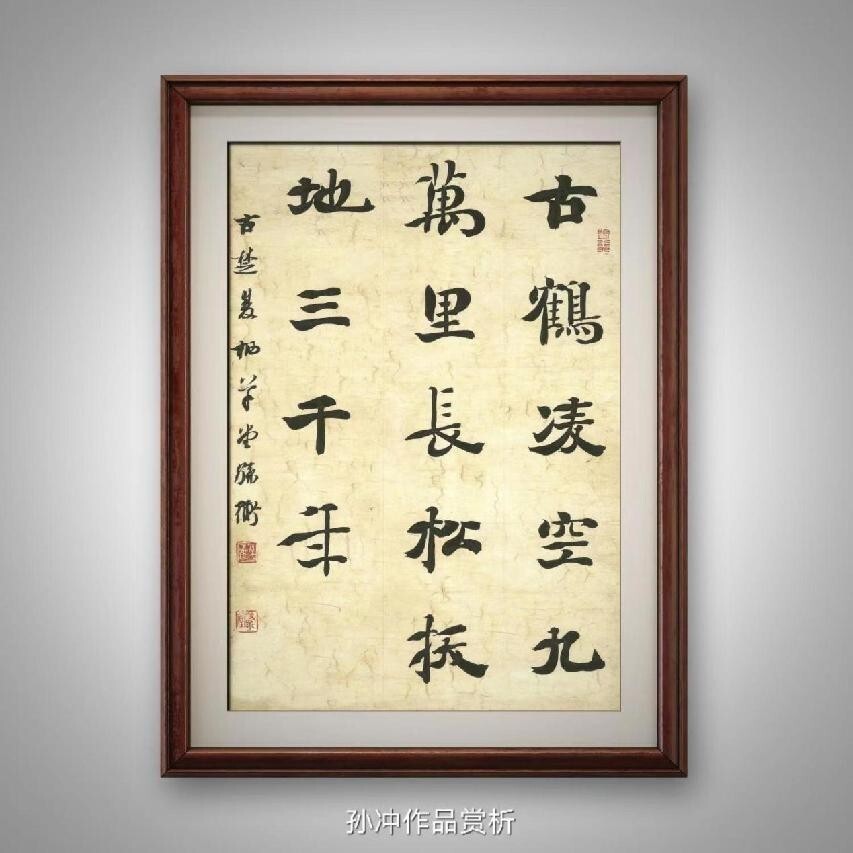 古鶴凌空九
萬里長松拔
地三千年
古楚草堂孫衝
孙冲作品赏析